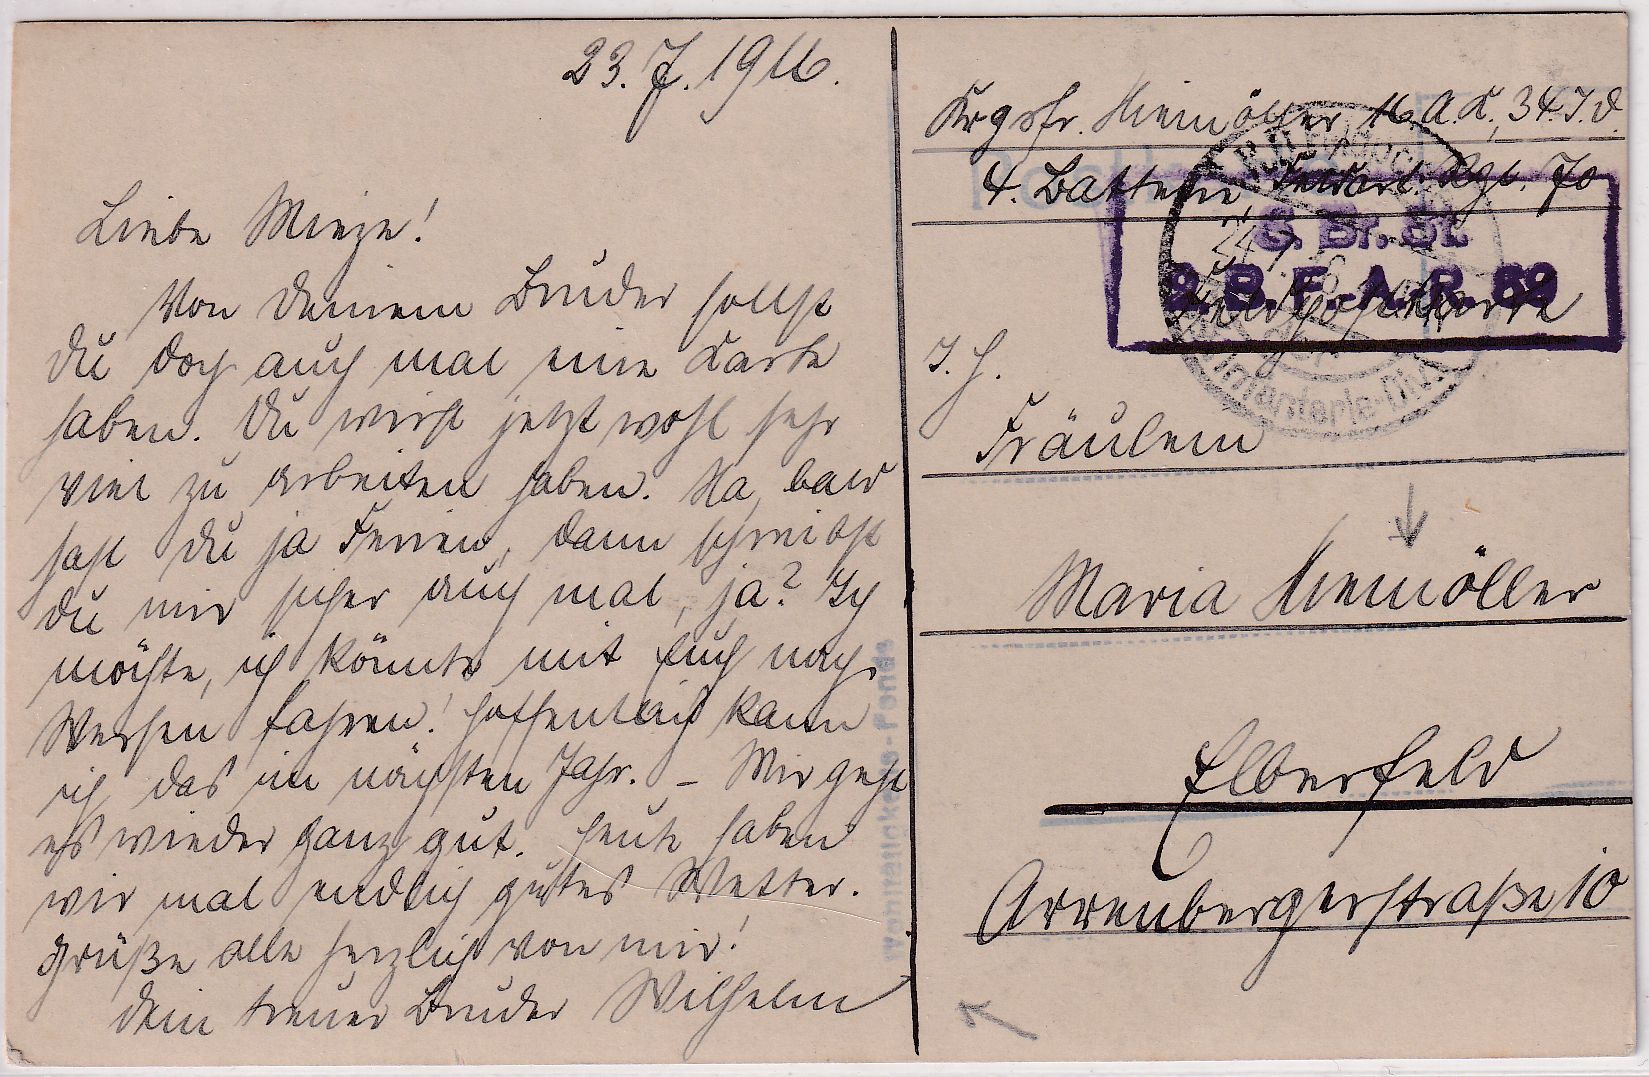 23.7.1916.
Liebe Mieze!
Von Deinem Bruder sollst
Du doch auch mal eine Karte
haben. Du wirst jetzt wohl sehr
viel zu arbeiten haben. Na, bald
hast Du ja Ferien, dann schreibst
Du mir sicher auch mal, ja? Ich
möchte, ich könnte mit Euch nach
Wersen fahren! Hoffentlich kann
ich das im nächsten Jahr. – Mir geht
es wieder ganz gut. Heute haben
wir mal endlich gutes Wetter.
Grüße alle herzlich von mir!
Dein treuer Bruder Wilhelm
Krgsfr. Niemöller 16 A.K., 34. I.D.
4. Batterie Feldart. Rgt. 70
S. Br. St.
9. B. F.-A.-R. 69
Feldpostkarte
der
Infanterie-Div.
I. H.
Fräulein
Maria Niemöller
Elberfeld
Arrenbergerstraße 10